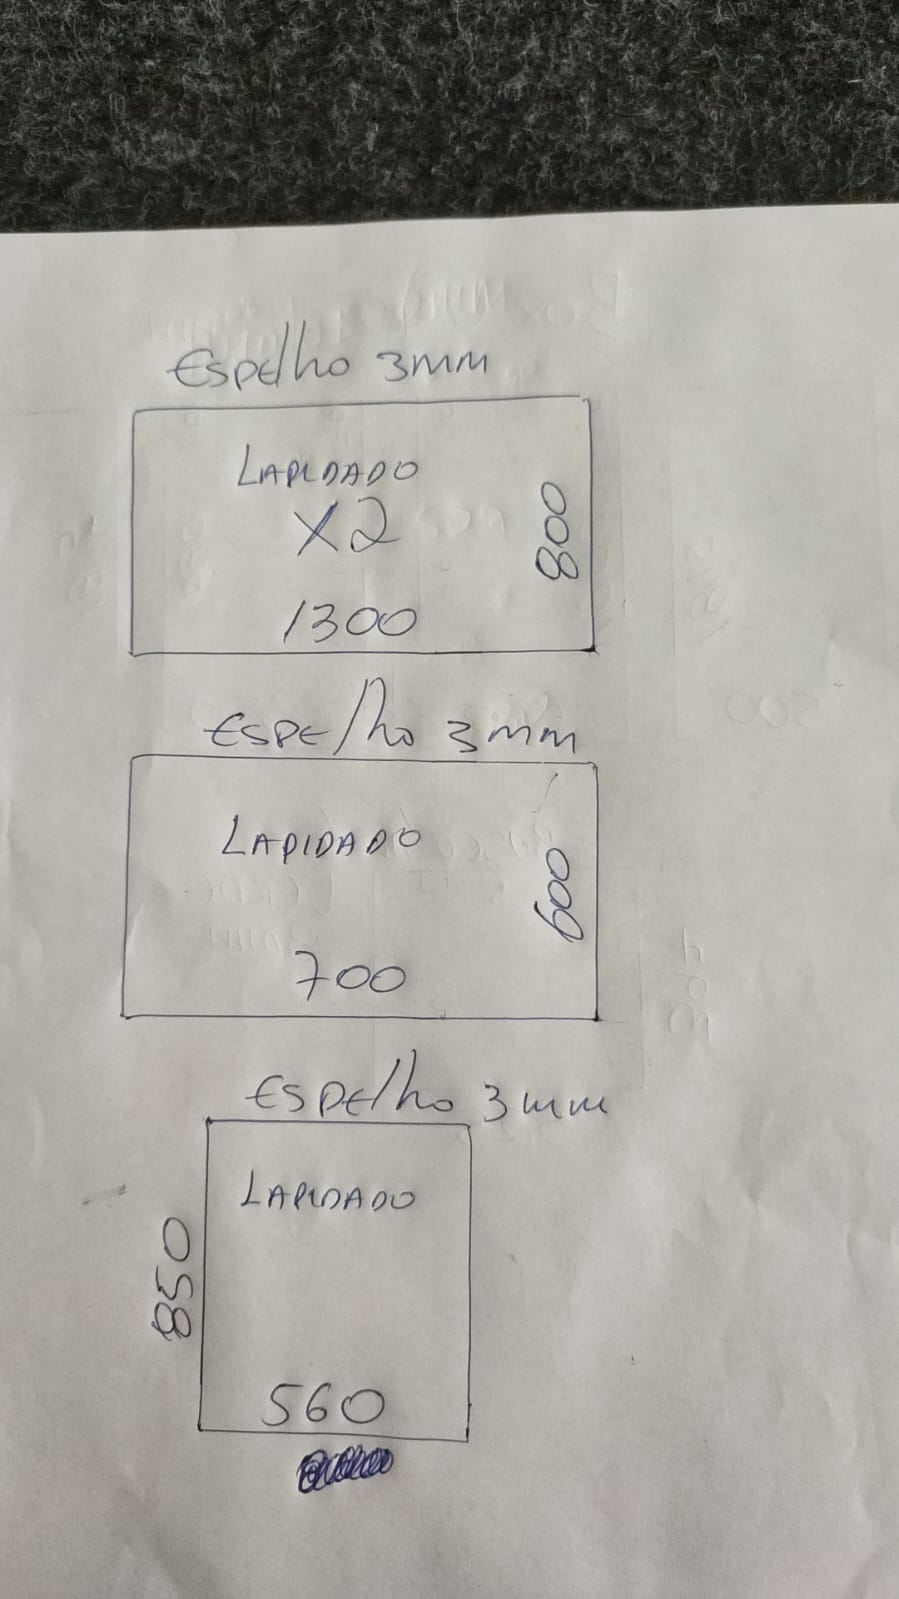 Espelho 3mm
LAPIDADO
X2
800
1300
ESPElho 3mm
LAPIDADO
600
700
ESPElho 3mm
LAPIDADO
850
560